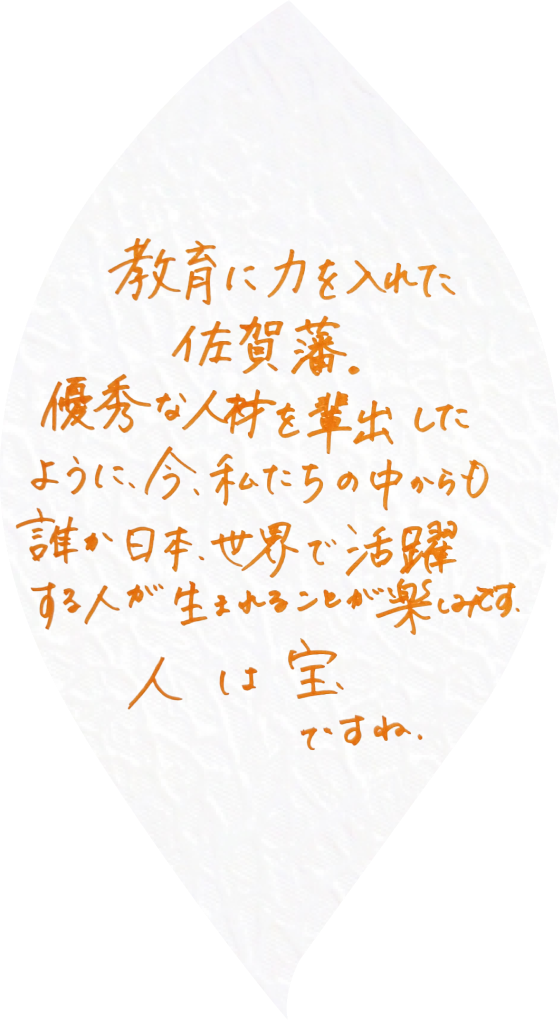 教育に力を入れた
佐賀藩。
優秀な人材を輩出した
ように、今、私たちの中からも
誰か日本、世界で活躍
する人が生まれることが楽しみです。
人は宝
ですね。